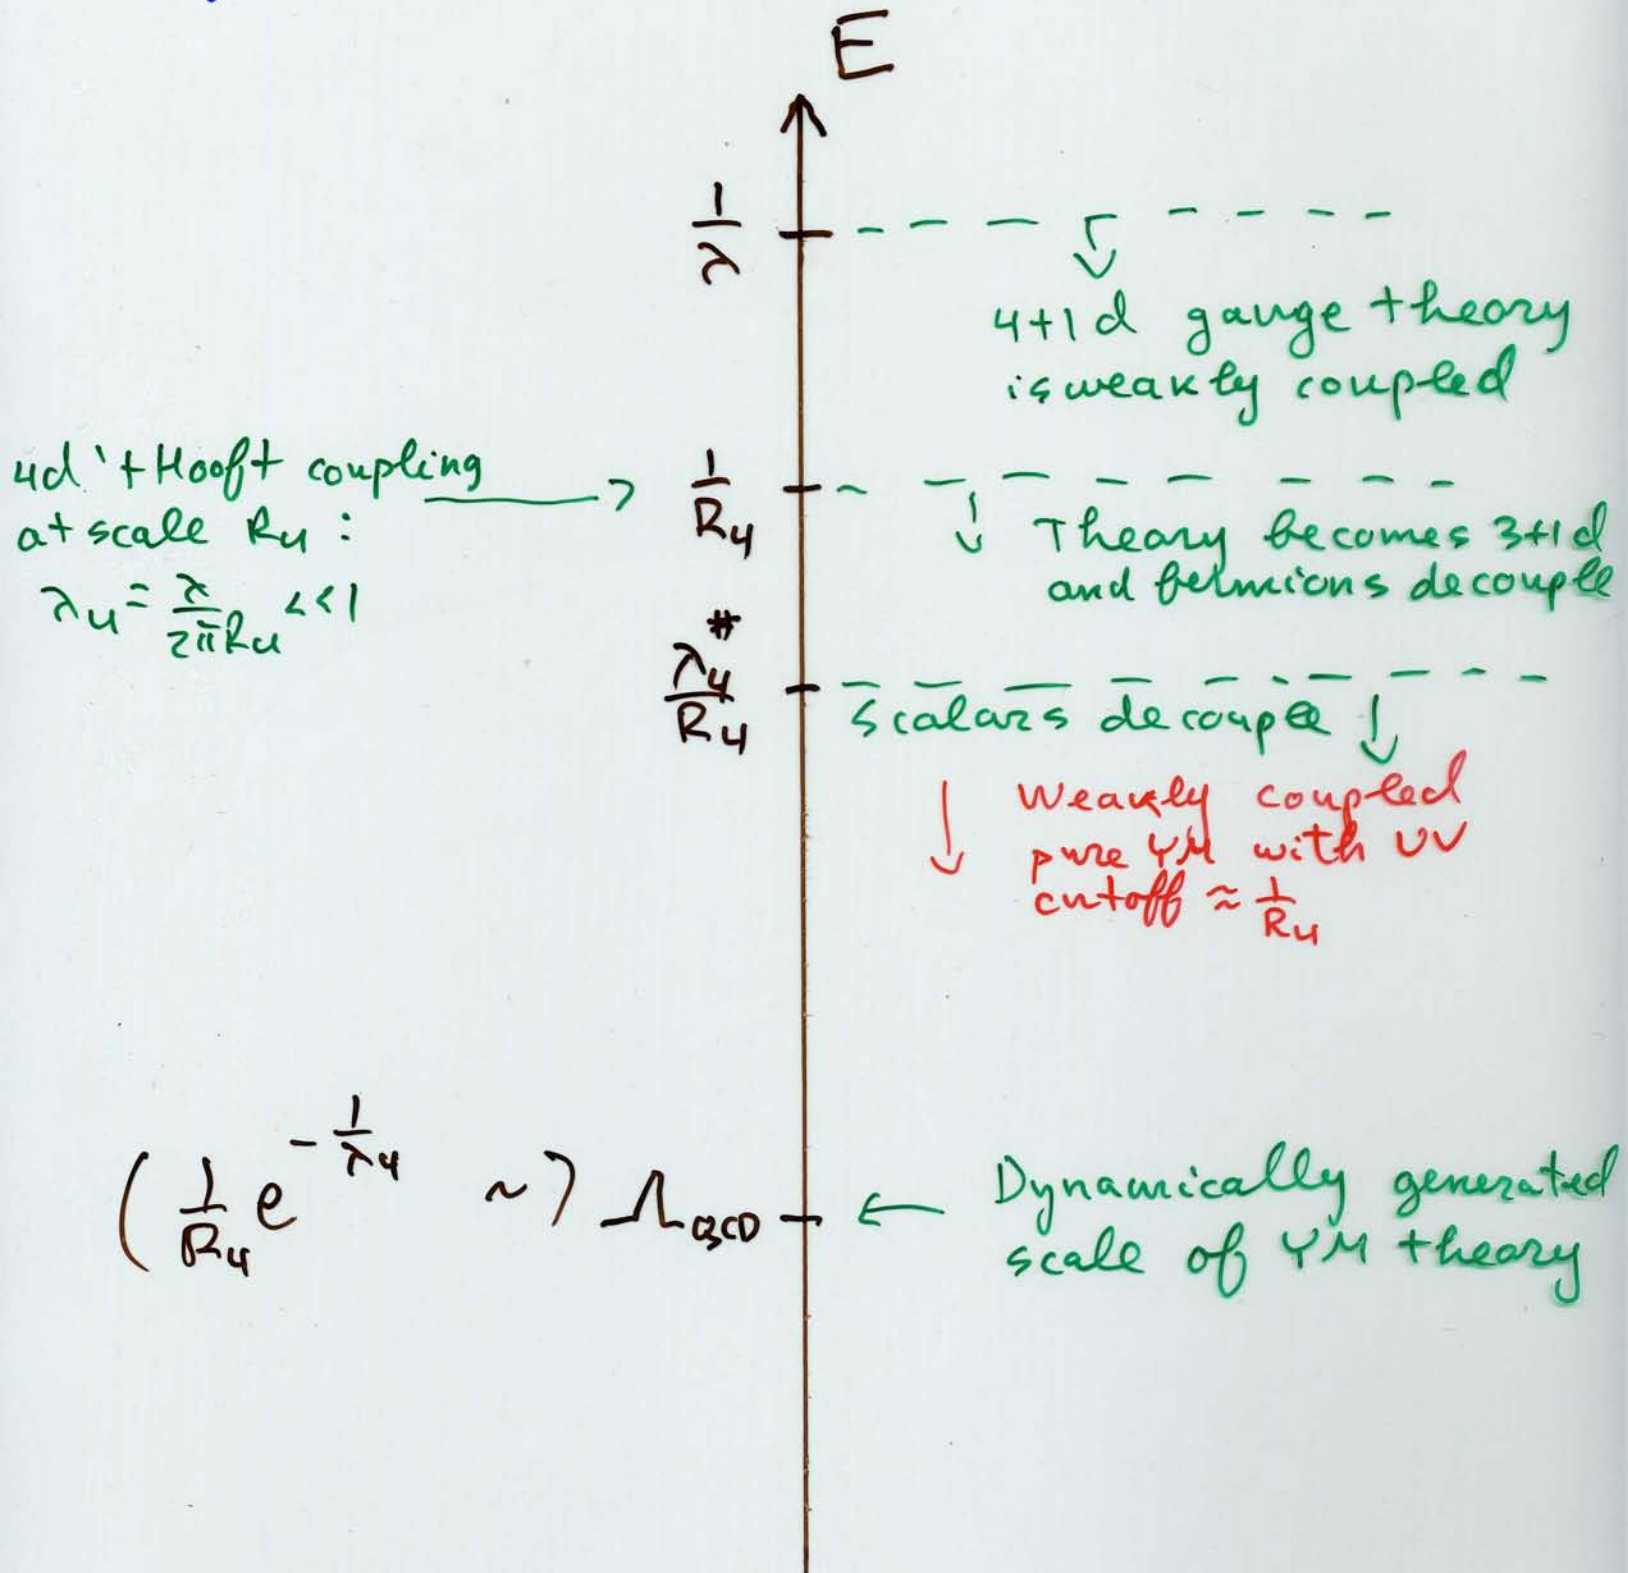 E
1/λ
4+1d gauge theory
is weakly coupled
4d 't Hooft coupling
at scale R₄ :
λ₄ = λ/2πR₄ << 1
1/R₄
Theory becomes 3+1d
and fermions decouple
λ₄^#/R₄
scalars decouple
Weakly coupled
pure YM with UV
cutoff ≈ 1/R₄
(1/R₄ e^(-1/λ₄) ~) Λ_QCD
Dynamically generated
scale of YM theory